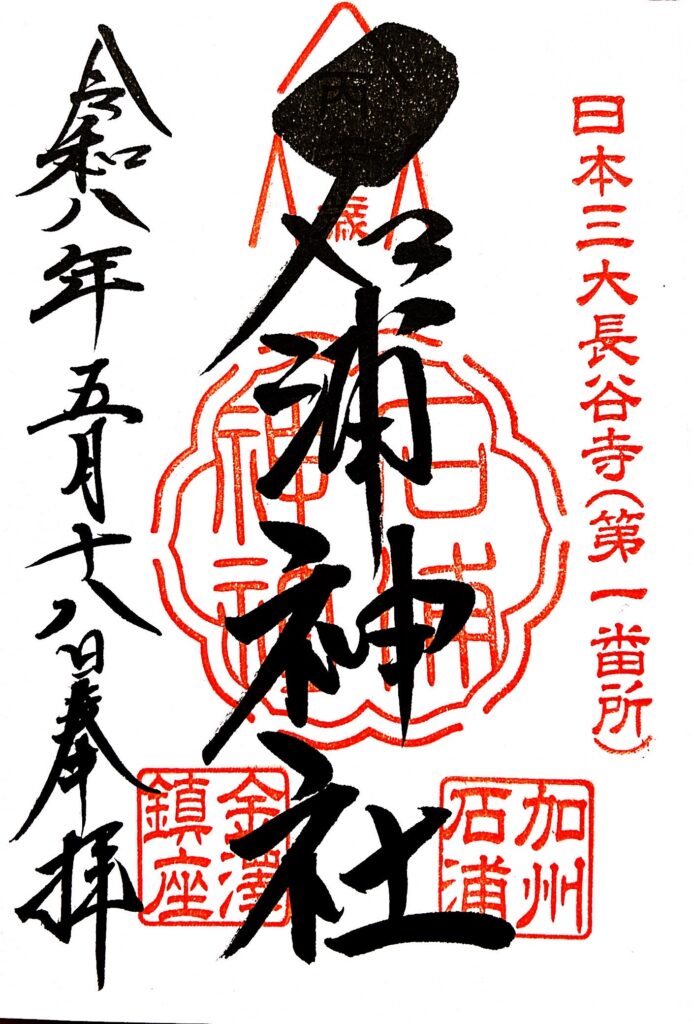 日本三大長谷寺(第一番所)
丙
歳
石浦神社
石浦神社
加州石浦
金澤鎮座
令和八年五月十八日奉拝